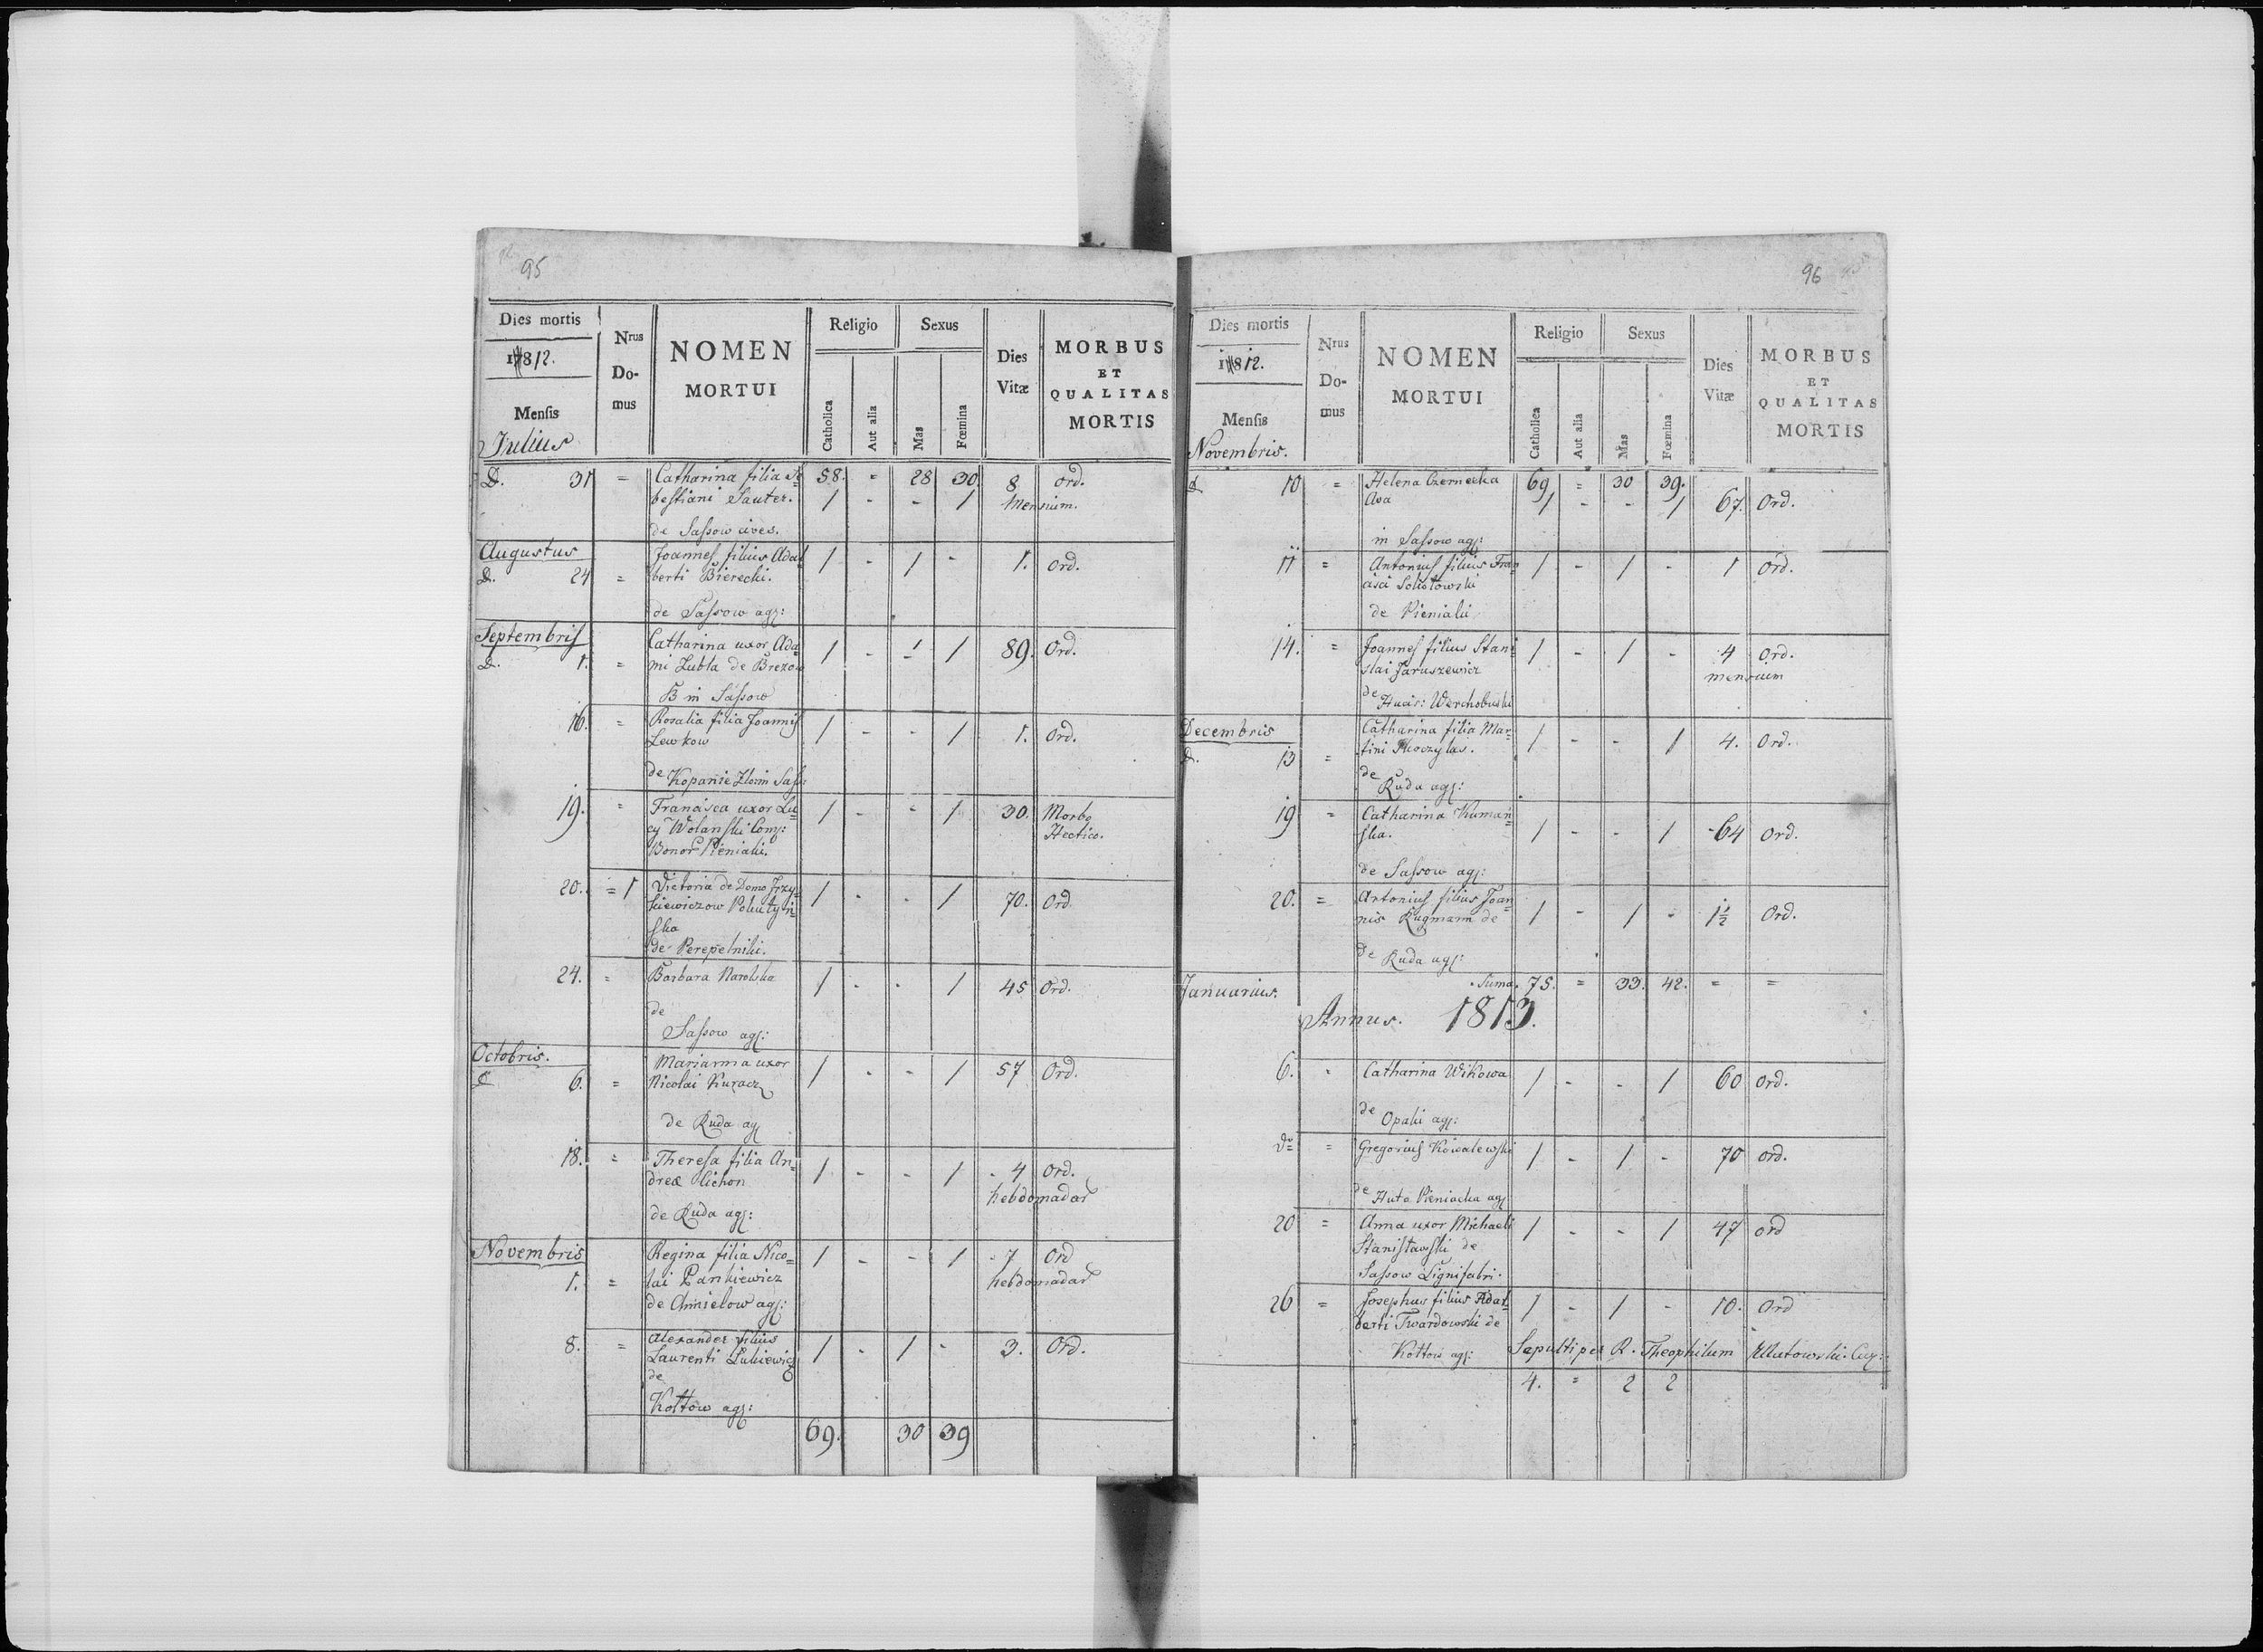 95
Dies mortis
Nrus Do-mus
NOMEN MORTUI
Religio
Sexus
Dies Vitæ
MORBUS ET QUALITAS MORTIS
1812.
Mensis
Catholica
Aut alia
Mas
Fœmina
Julius
D. 31 = Catharina filia Se= 58. = 28 30. 8. Ord.
bestiani Sauter. 1 - - 1 Mensium.
de Sassow cives.
Augustus
Joannes filius Adal
D. 24 = berti Bierecki. 1 - 1 - 1. Ord.
de Sassow agr:
Septembris
Catharina uxor Ada=
D. 1. = mi Lubla de Brezow 1 - 1 89. Ord.
B in Sassow
16. = Rosalia filia Joannis
Lewkow 1 - - 1 1. Ord.
de Kopanie Zlocin Sass:
19. = Francisca uxor Lu= 1 - - 1 30. Morbo
cy Wolanski Coms: Hectico.
Bonor Pieniaki.
20. = 1 Victoria de Domo Jrzy=
kiewiczow Pohutyń 1 - - 1 70. Ord
ska
de Perepelniki.
24. = Barbara Narolska 1 - - 1 45 Ord.
de
Sassow agr:
Octobris.
Marianna uxor
D 6. = Nicolai Kuracz 1 - - 1 57 Ord.
de Ruda agr
18. = Theresa filia An=
dreæ Cichon 1 - - 1 4 Ord.
hebdomadar
de Ruda agr:
Novembris
Regina filia Nico= 1 - - 1 7 Ord
1. = lai Pankiewicz hebdomadar
de Chmielow agr:
8. = Alexander filius
Laurenti Lukiewicz 1 - 1 - 3. Ord.
de
Kołtow agr:
69. 30 39
96
Dies mortis
Nrus Do-mus
NOMEN MORTUI
Religio
Sexus
Dies Vitæ
MORBUS ET QUALITAS MORTIS
1812.
Mensis
Catholica
Aut alia
Mas
Fœmina
Novembris.
D 10 = Helena Czernecka 69 = 30 39.
1 - - 1 67. Ord.
in Sassow agr:
11 = Antonius filius Fran 1 - 1 - 1 Ord.
cisci Sokołowski
de Pieniaki
14. = Joannes filius Stani= 1 - 1 - 4 Ord.
slai Jaruszewicz mensium
de Hucis: Werchobuski
Decembris
Catharina filia Mar=
D. 13 = tini Thoczylas. 1 - - 1 4. Ord.
de
Ruda agr:
19 = Catharina Kuman=
ska. 1 - - 1 64 Ord.
de Sassow agr:
20. = Antonius filius Joan=
nis Rugmann de 1 - 1 - 1½ Ord.
de Ruda agr:
Januarius. Suma. 75. = 33. 42. = =
Annus. 1813.
6. - Catharina Wikowa 1 - - 1 60 Ord.
de Opaki agr:
do = Gregorius Kowalewski 1 - 1 - 70 Ord.
de Huta Pieniacka agr
20 = Anna uxor Michaeli 1 - - 1 47 Ord
Stanisławski de
Sassow Lignifabri.
26 = Josephus filius Adal= 1 - 1 - 10. Ord
berti Twardowski de
Kołtow agr: Sepulti per R. Theophilum
4. = 2 2